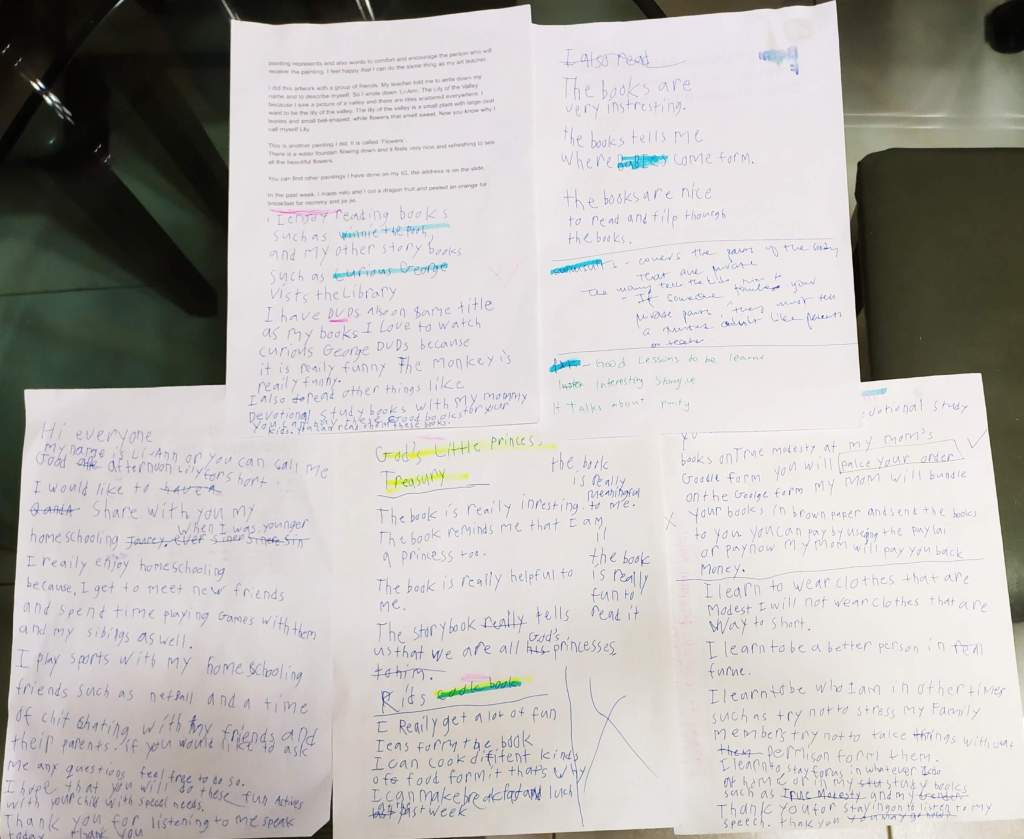 painting represents and also words to comfort and encourage the person who will
receive the painting. I feel happy that I can do the same thing as my art teacher.
I did this artwork with a group of friends. My teacher told me to write down my
name and to describe myself. So I wrote down 'Li-Ann, The Lily of the Valley
because I saw a picture of a valley and there are lilies scattered everywhere. I
want to be the lily of the valley. The lily of the valley is a small plant with large oval
leaves and small bell-shaped, white flowers that smell sweet. Now you know why I
call myself Lily.
This is another painting I did. It is called 'Flowers'
There is a water fountain flowing down and it feels very nice and refreshing to see
all the beautiful flowers.
You can find other paintings I have done on my IG, the address is on the slide.
In the past week, I made milo and I cut a dragon fruit and peeled an orange for
breakfast for mommy and
I enjoy reading books
such as winnie the Pooh,
and my other story books
such as Curious George
Vists the Library
I have DVDs also on same title
as my books I Love to watch
curious George DVDs because
it is really funny The monkey is
really funny.
I also read other things like
Devotional Study books with My mommy
you can buy these Good books for your
kids. You can read them these books.
I also read
The books are
very instresting.
the books tells me
where come form.
the books are nice
to read and filp thourgh
the books.
- covers the parts of the body
that are private
- If someone touches your
private parts, they must tell
a trusted adult like parents
or teacher
- Good Lessons to be learnt
Interesting
It Talks about Purity
Hi everyone
My name is Li-Ann or you can call me
Good afternoon Lily for short.
I would like to have a
Q and A Share with you my
When I was younger
homeschooling
I really enjoy homeschooling
because, I get to meet new friends
and spend time playing Games with them
and my sibilgs as well.
I play sports with my homeschooling
friends such as netball and a time
of chit chating with my friends and
their parents. if you would like to ask
me any questions feel free to do so.
I hope that you will do these fun
with your child with specel needs.
Thank you for listening to me speak
today thank you
God's Little princess
Treasury
The book is really inresting.
The book reminds me that I am
a princess toe.
The book is really helpful to
me.
The storybook really tells
us that we are all his God's princesses
to him.
the book
is really
meaningful
to me.
the book
is really
fun to
read it
Kids book
I Really get a lot of fun
Ieas form the book
I can cook difftent kinds
of food form it that's why
I can make breakfast and luch
last week
devotional study
books on True modesty at my mom's
Goodle form you will palce your order
on the Goolge form my mom will bundle
your books in brown paper and send the books
to you you can pay by using the paylai
or paynow my mom will pay you back
Money.
I learn to wear clothes that are
Modest I will not wear clothes that are
way to short.
I learn to be a better person in
furue.
I learn to be who I am in other times
such as try not to stress my Family
members try not to take things without
them permison form them.
I learn to stay forus in whatever I do
at home or in my study books
such as True Modesty and my
Thank you for staying on to listen to my
speech. thank you